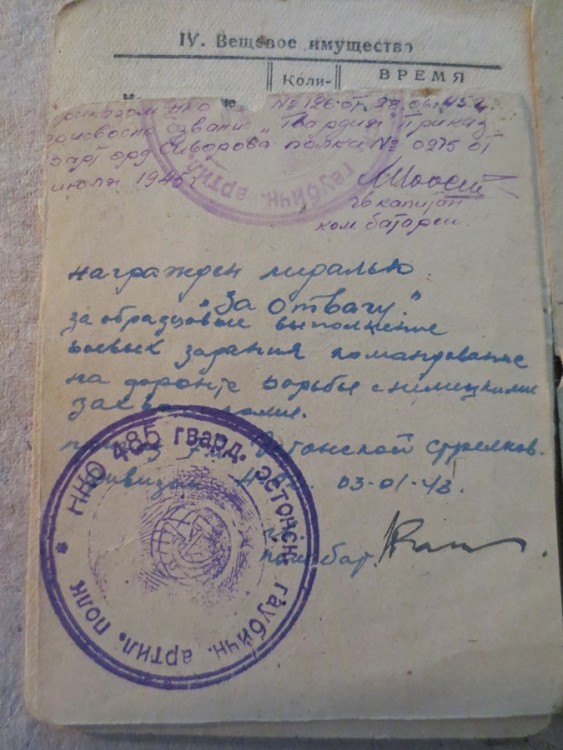 IV. Вещевое имущество
Коли-
ВРЕМЯ
приказом НКО № 126 от 28.06.45 г.
"Гвардия" приказ
полка № 0275 от
июля 1945 г.
гв капитан
ком батареи
награжден медалью
"За отвагу."
за образцовые выполнение
боевых задания командование
на фронте борьбы с немецкими
захватчиками.
Эстонской стрелков.
дивизии 03-01-43.
бат.
* НКО 485 гвард. эстонск. гаубичн. артил. полк
гаубичн. артил.